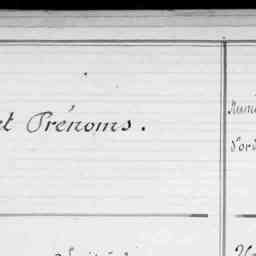 et Prénoms.
Numé
d'ord